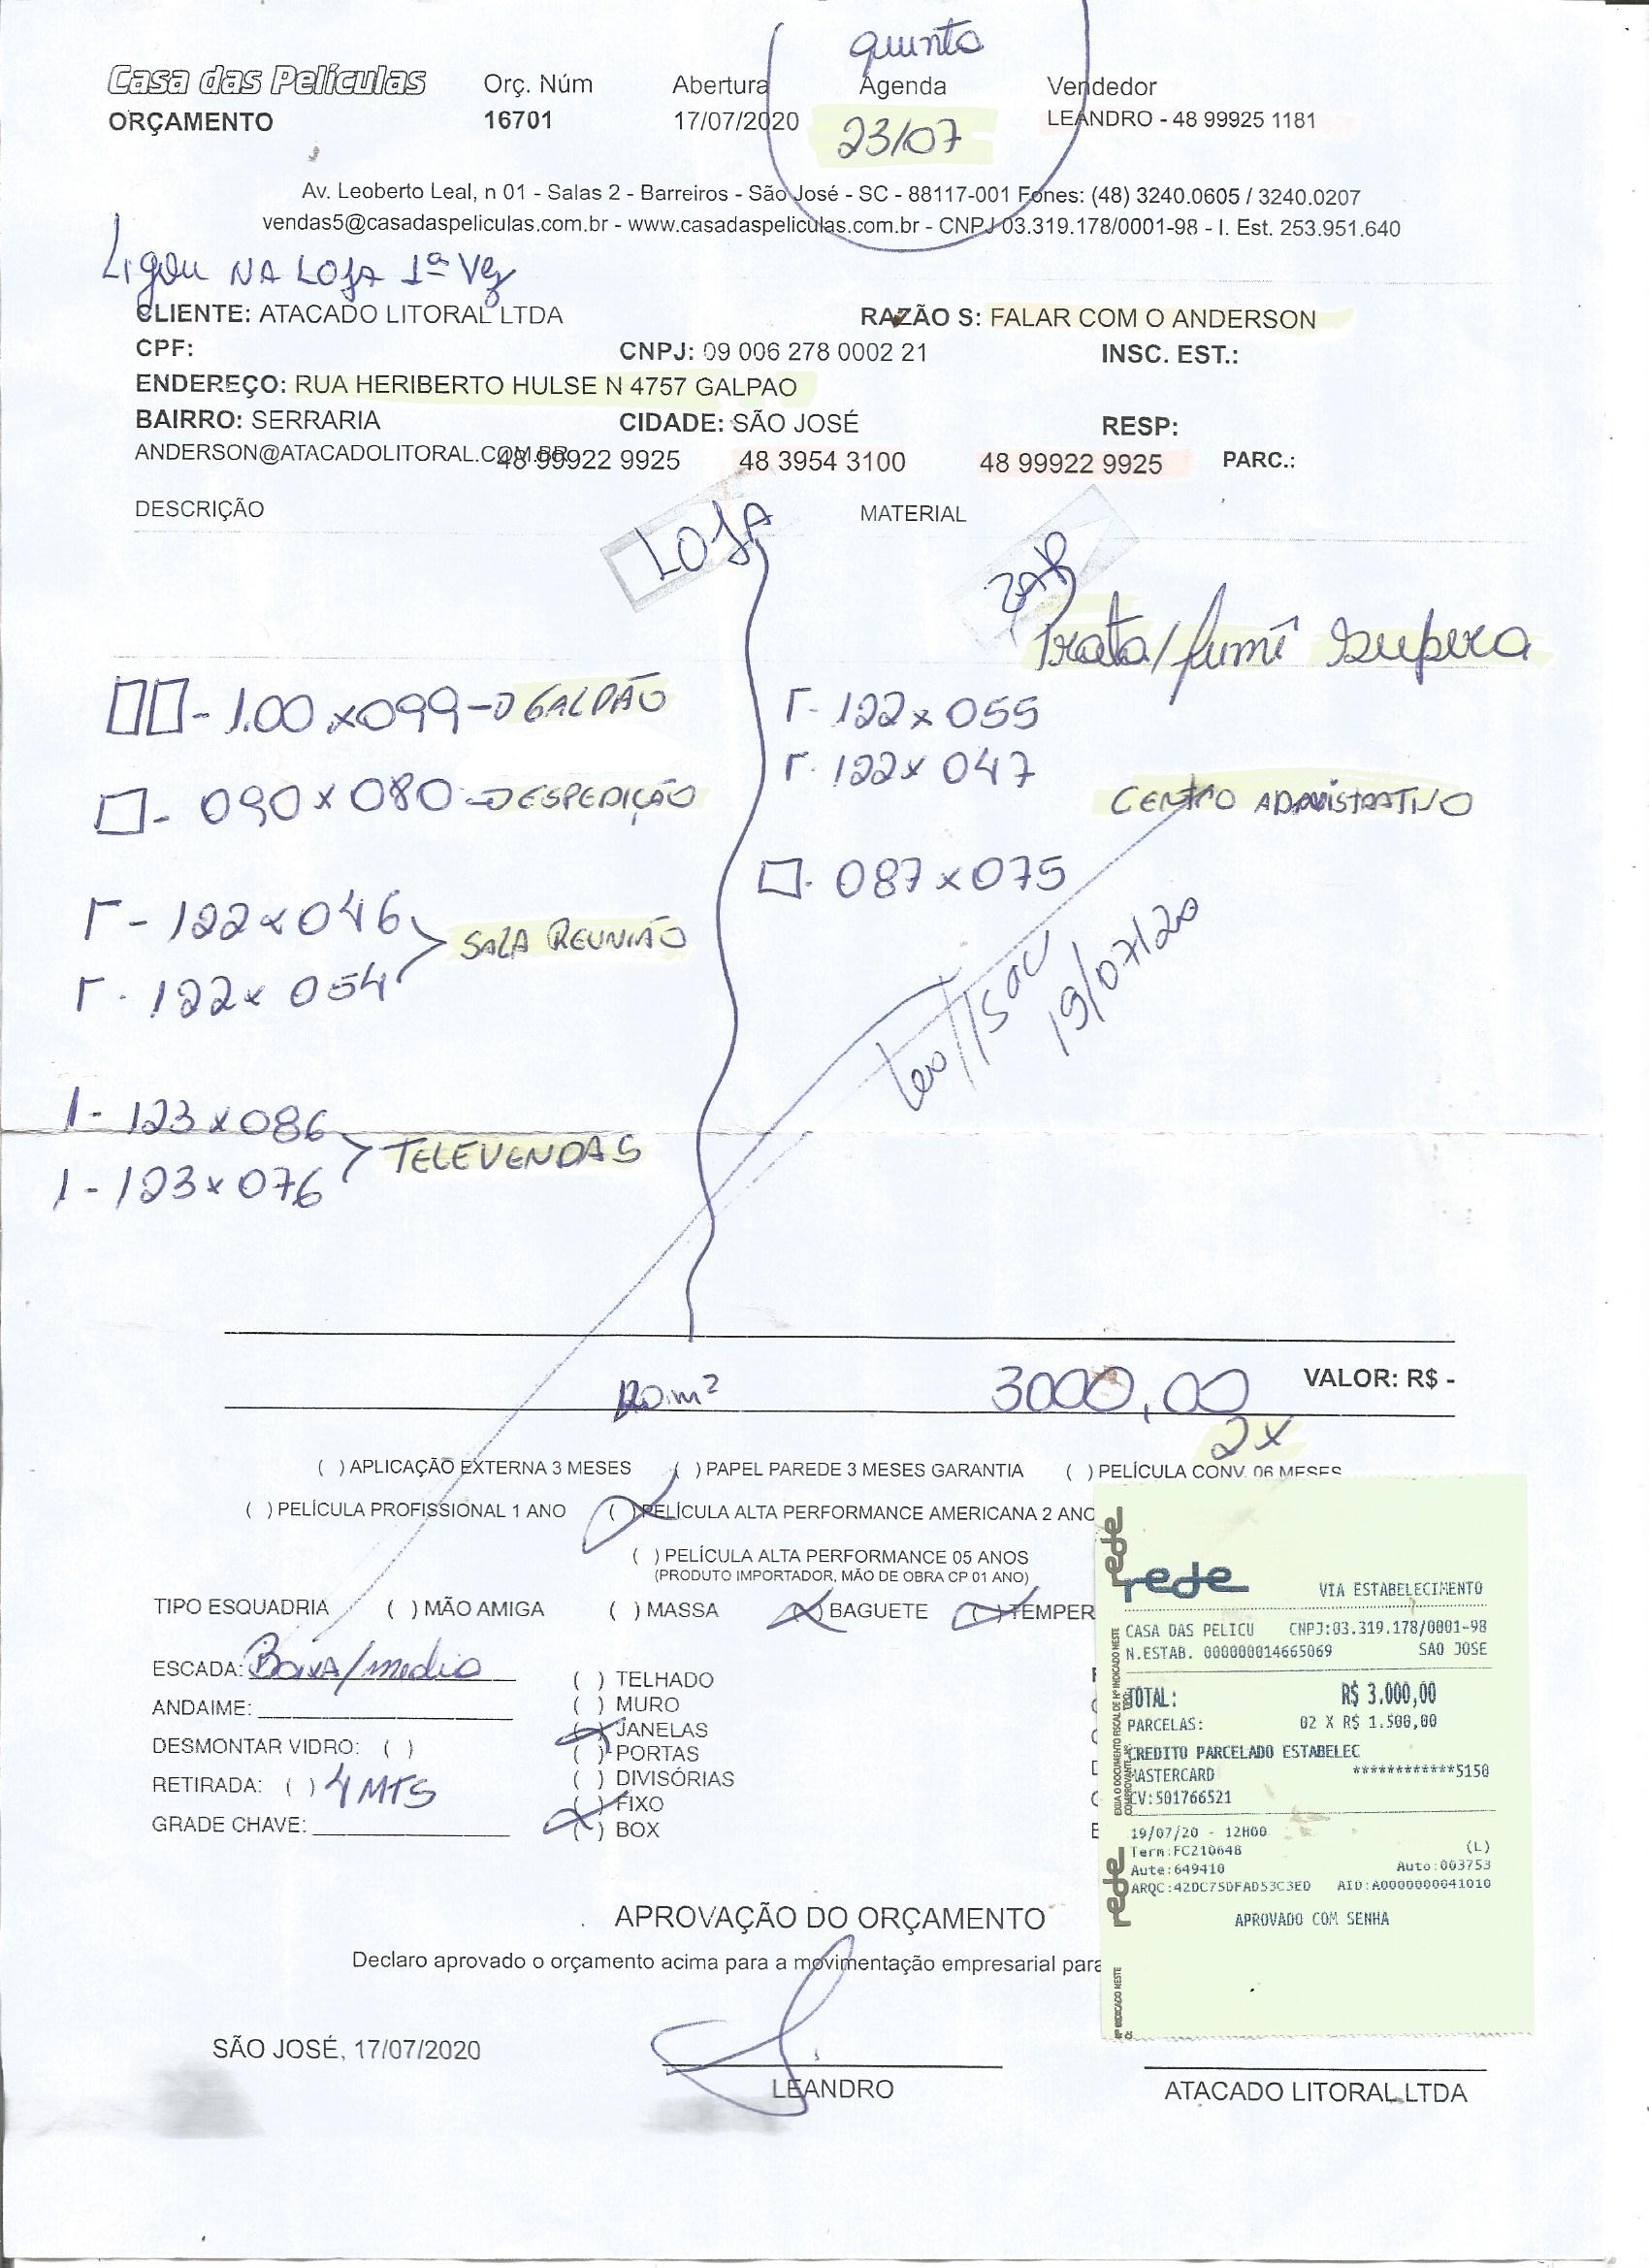 quinta
Casa das Películas Orç. Núm Abertura Agenda Vendedor
ORÇAMENTO 16701 17/07/2020 23/07 LEANDRO - 48 99925 1181
Av. Leoberto Leal, n 01 - Salas 2 - Barreiros - São José - SC - 88117-001 Fones: (48) 3240.0605 / 3240.0207
vendas5@casadaspeliculas.com.br - www.casadaspeliculas.com.br - CNPJ 03.319.178/0001-98 - I. Est. 253.951.640
Ligou NA LOJA 1ª Vez
CLIENTE: ATACADO LITORAL LTDA RAZÃO S: FALAR COM O ANDERSON
CPF: CNPJ: 09 006 278 0002 21 INSC. EST.:
ENDEREÇO: RUA HERIBERTO HULSE N 4757 GALPAO
BAIRRO: SERRARIA CIDADE: SÃO JOSÉ RESP:
ANDERSON@ATACADOLITORAL.COM.BR 48 99922 9925 48 3954 3100 48 99922 9925 PARC.:
DESCRIÇÃO MATERIAL
LOJA
ZAP
Prata/fumê Supera
- 1.00 x 099 - GALPÃO - 122 x 055
- 122 x 047
- 090 x 080 - ESPEDIÇÃO CENTRO ADMISTRATIVO
- 087 x 075
- 122 x 046
SALA REUNIÃO
- 122 x 054
Leo/Isac
19/07/20
1 - 123 x 086
TELEVENDAS
1 - 123 x 076
m² 3000,00 VALOR: R$ -
2x
( ) APLICAÇÃO EXTERNA 3 MESES ( ) PAPEL PAREDE 3 MESES GARANTIA ( ) PELÍCULA CONV. 06 MESES
( ) PELÍCULA PROFISSIONAL 1 ANO ( ) PELÍCULA ALTA PERFORMANCE AMERICANA 2 ANO
( ) PELÍCULA ALTA PERFORMANCE 05 ANOS
(PRODUTO IMPORTADOR, MÃO DE OBRA CP 01 ANO)
TIPO ESQUADRIA ( ) MÃO AMIGA ( ) MASSA ( ) BAGUETE ( ) TEMPER
ESCADA: Baixa/media
ANDAIME:
DESMONTAR VIDRO: ( )
RETIRADA: ( ) 4 MTS
GRADE CHAVE:
( ) TELHADO
( ) MURO
( ) JANELAS
( ) PORTAS
( ) DIVISÓRIAS
( ) FIXO
( ) BOX
rede
rede
VIA ESTABELECIMENTO
CASA DAS PELICU CNPJ:03.319.178/0001-98
N.ESTAB. 000000014665069 SAO JOSE
TOTAL: R$ 3.000,00
PARCELAS: 02 X R$ 1.500,00
CREDITO PARCELADO ESTABELEC
MASTERCARD ************5150
CV:501766521
19/07/20 - 12H00
Term:FC210648 (L)
Aute:649410 Auto:003753
ARQC:42DC75DFAD53C3ED AID:A0000000041010
APROVADO COM SENHA
rede
APROVAÇÃO DO ORÇAMENTO
Declaro aprovado o orçamento acima para a movimentação empresarial para
SÃO JOSÉ, 17/07/2020
LEANDRO ATACADO LITORAL LTDA